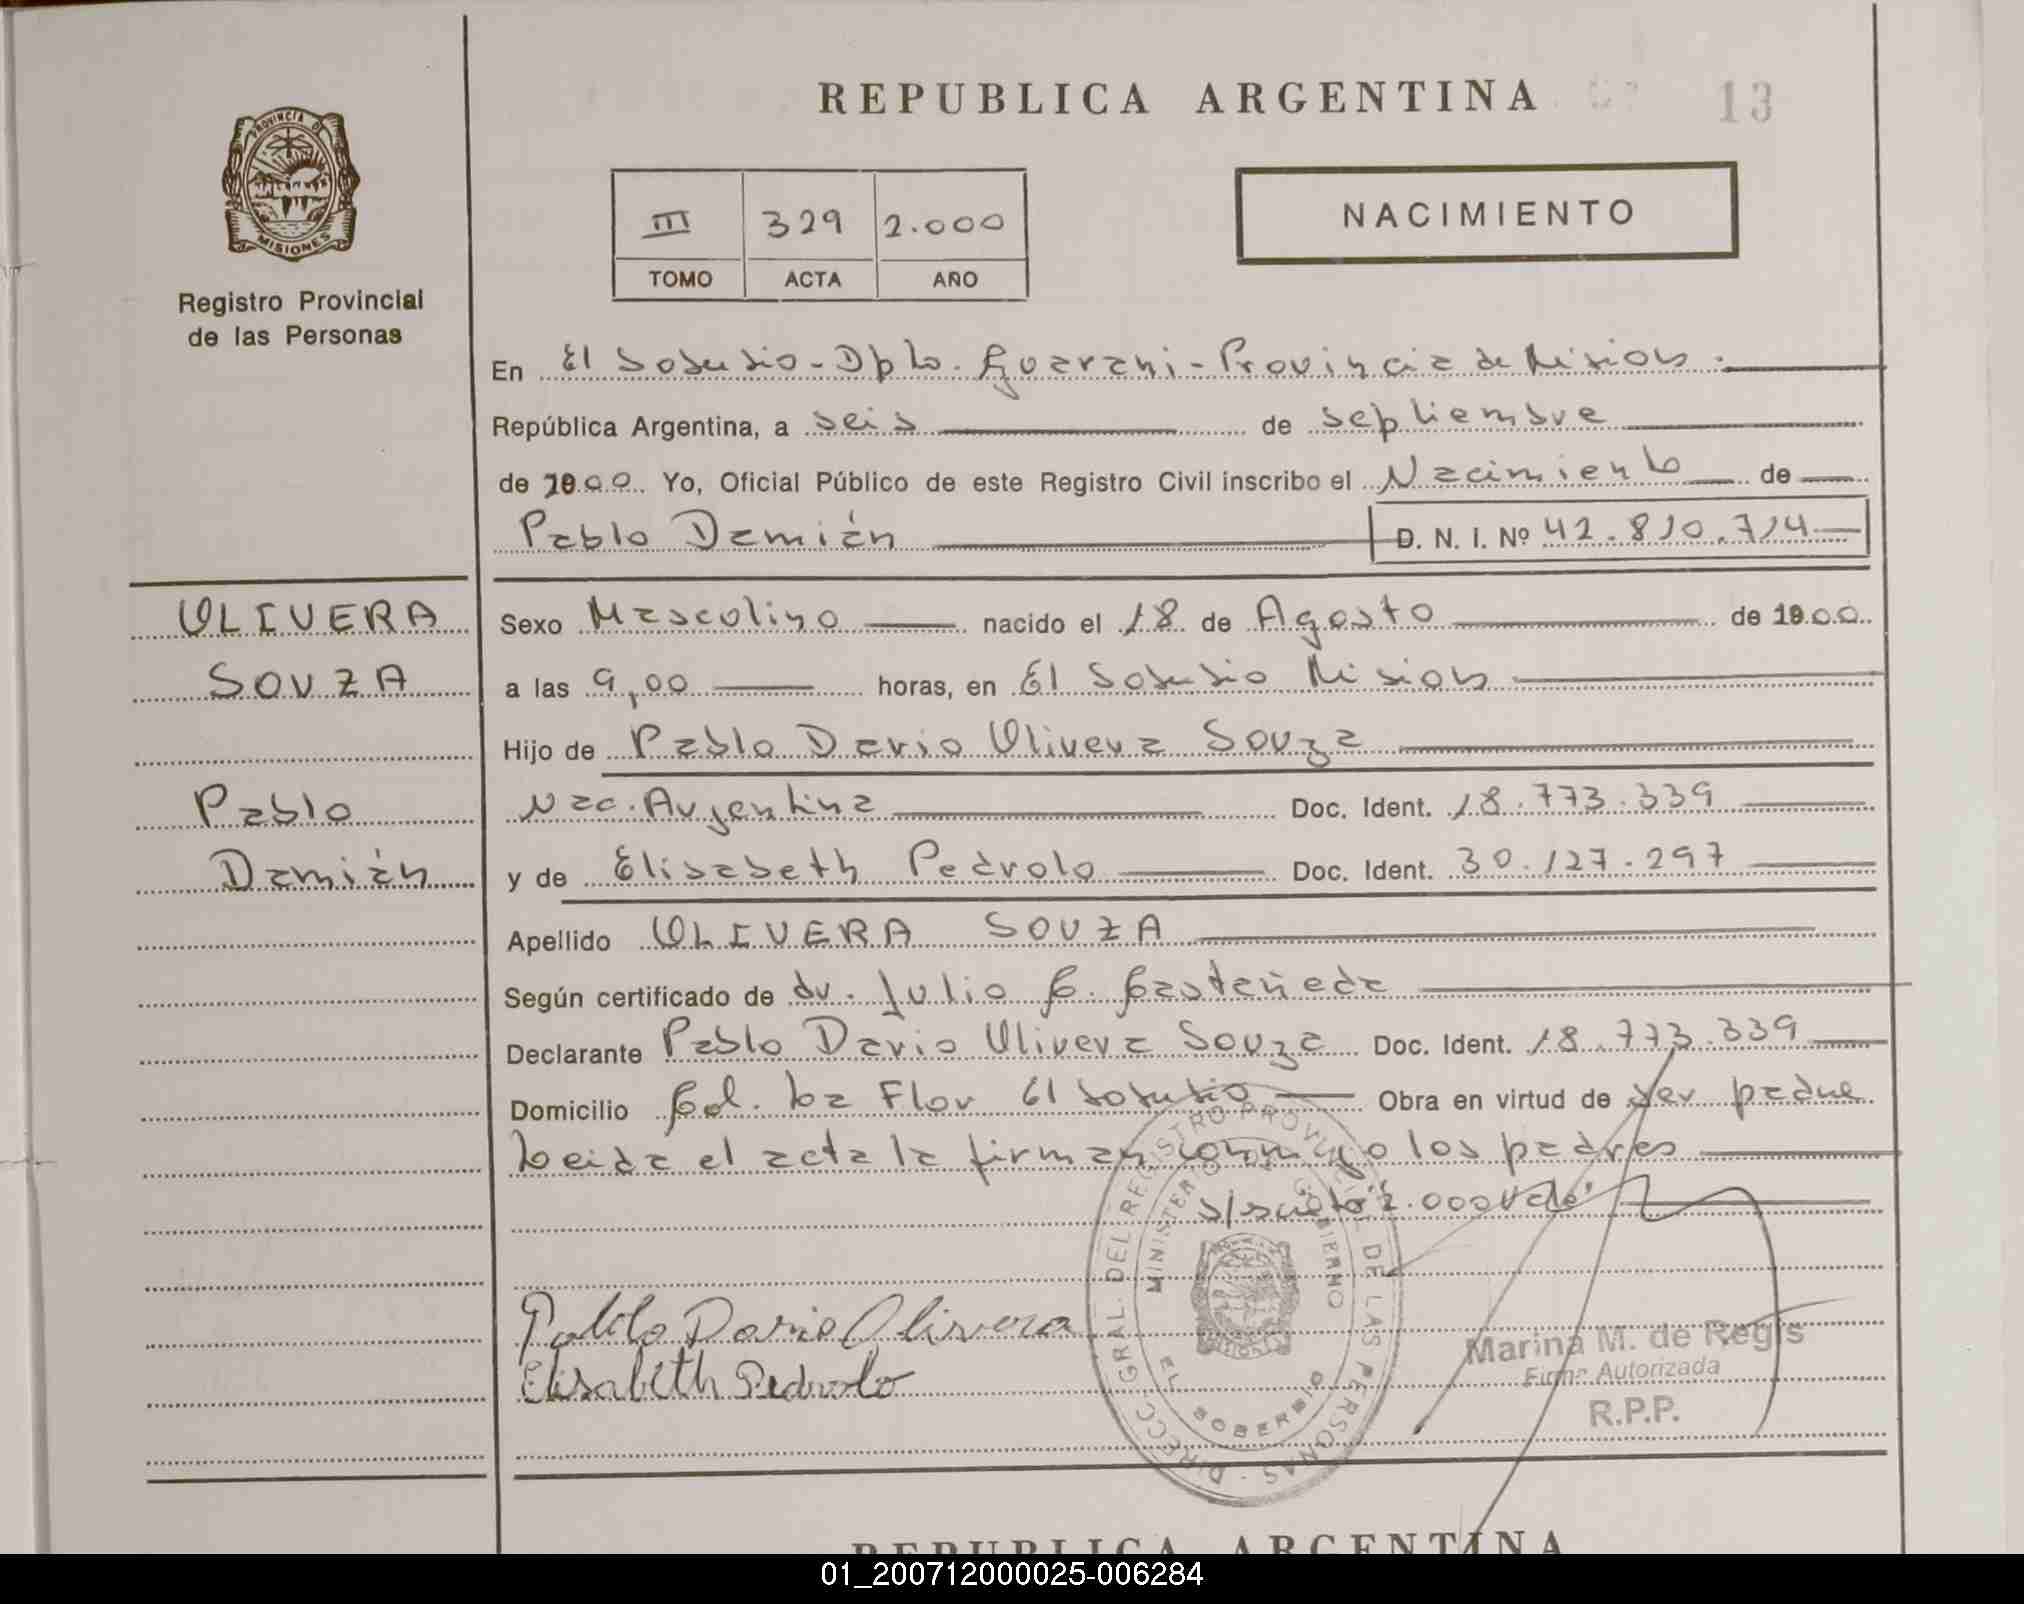 REPUBLICA ARGENTINA
13
PROVINCIA DE
MISIONES
Registro Provincial
de las Personas
III 329 2.000
TOMO ACTA AÑO
NACIMIENTO
En El Soberbio - Dpto. Guarani - Provincia de Misiones.
República Argentina, a seis de septiembre
de 2000 Yo, Oficial Público de este Registro Civil inscribo el Nacimiento de
Pablo Damián D. N. I. Nº 42.810.714
OLIVERA
SOUZA
Pablo
Damián
Sexo Masculino nacido el 18 de Agosto de 2000
a las 9,00 horas, en El Soberbio Misiones
Hijo de Pablo Dario Olivera Souza
Nac. Argentina Doc. Ident. 18.773.339
y de Elisabeth Pedrolo Doc. Ident. 30.127.297
Apellido OLIVERA SOUZA
Según certificado de dr. Julio C. Castañeda
Declarante Pablo Dario Olivera Souza Doc. Ident. 18.773.339
Domicilio Col. La Flor El Soberbio Obra en virtud de ser padre
Leida el acta la firman conmigo los padres
2.000
Pablo Dario Olivera
Elisabeth Pedrolo
DIRECC. GRAL. DEL REGISTRO PROVINCIAL DE LAS PERSONAS
MINISTERIO GOBIERNO
EL SOBERBIO
Marina M. de Regis
Firma Autorizada
R.P.P.
REPUBLICA ARGENTINA
01_200712000025-006284